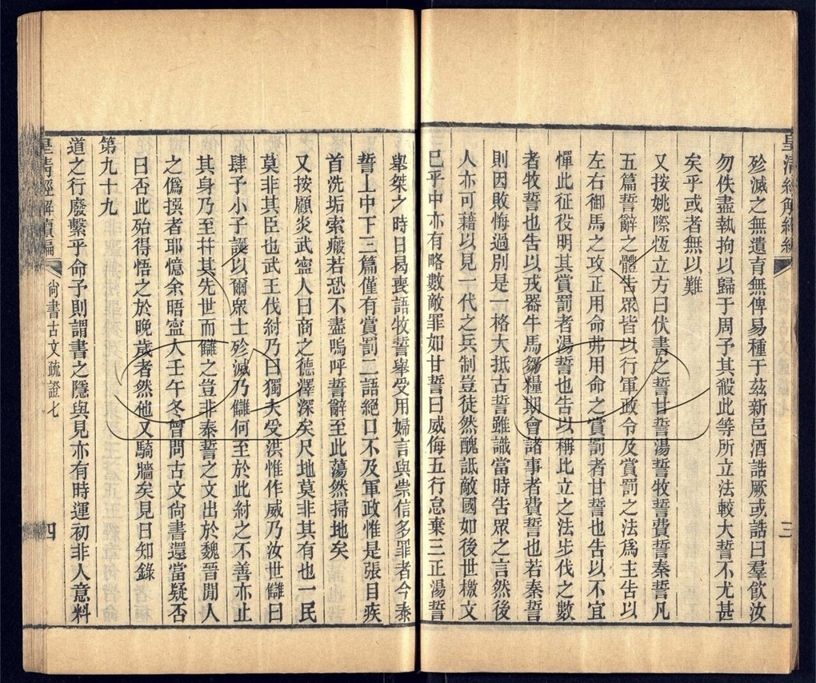 皇清經解續編
三
殄滅之無遺育無俾易種于茲新邑酒誥厥或誥曰羣飲汝
勿佚盡執拘以歸于周予其殺此等所立法較大誓不尤甚
矣乎或者無以難
又按姚際恆立方曰伏書之誓甘誓湯誓牧誓費誓秦誓凡
五篇誓辭之體告眾皆以行軍政令及賞罰之法爲主告以
左右御馬之攻正用命弗用命之賞罰者甘誓也告以不宜
憚此征役明其賞罰者湯誓也告以稱比立之法步伐之數
者牧誓也告以戎器牛馬芻糧期會諸事者費誓也若秦誓
則因敗悔過別是一格大抵古誓雖識當時告眾之言然後
人亦可藉以見一代之兵制豈徒然醜詆敵國如後世檄文
已乎中亦有略數敵罪如甘誓曰威侮五行怠棄三正湯誓
舉桀之時日曷喪語牧誓舉受用婦言與崇信多罪者今泰
誓上中下三篇僅有賞罰二語絕口不及軍政惟是張目疾
首洗垢索瘢若恐不盡嗚呼誓辭至此蕩然掃地矣
又按顧炎武寧人曰商之德澤深矣尺地莫非其有也一民
莫非其臣也武王伐紂乃曰獨夫受洪惟作威乃汝世讎曰
肆予小子誕以爾眾士殄滅乃讎何至於此紂之不善亦止
其身乃至幷其先世而讎之豈非泰誓之文出於魏晉閒人
之僞撰者耶憶余晤寧人壬午冬曾問古文尚書還當疑否
曰否此殆得悟之於晚歲者然他又騎牆矣見日知錄
第九十九
道之行廢繫乎命予則謂書之隱與見亦有時運初非人意料
皇清經解續編
尚書古文疏證七
四